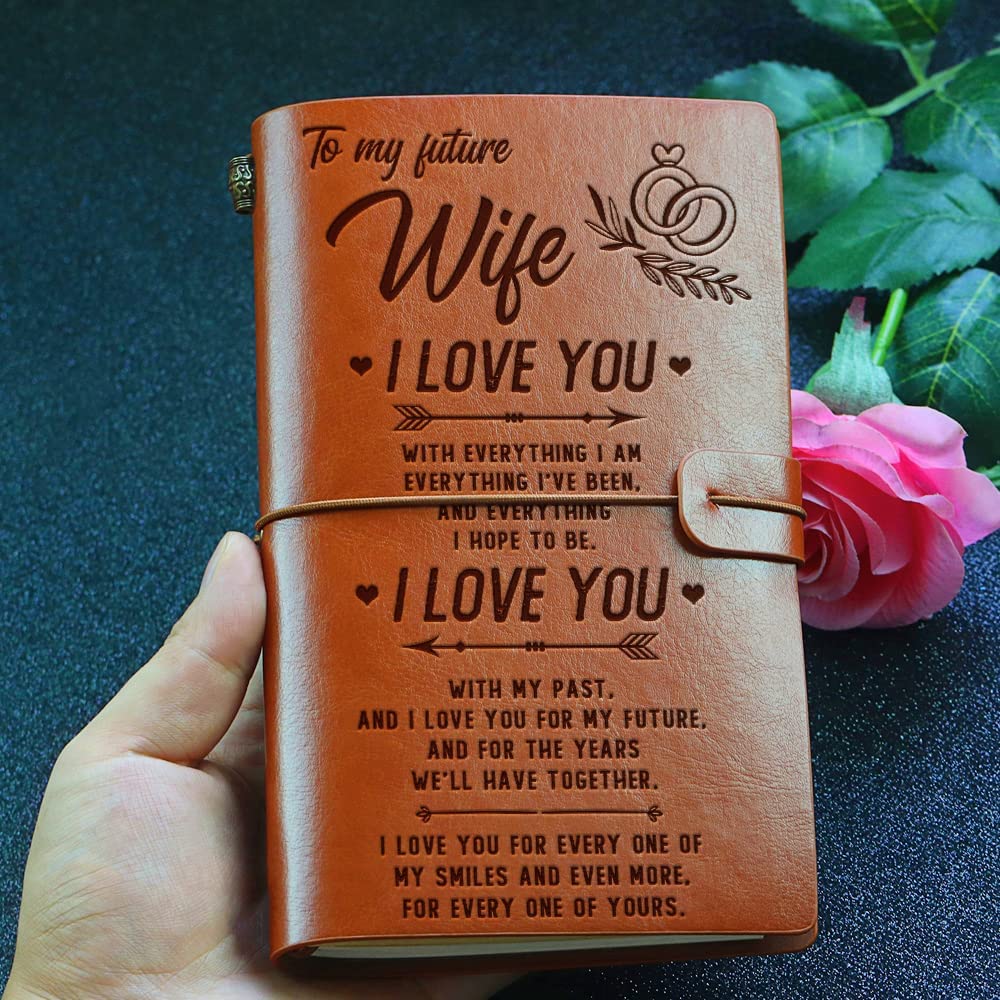 To my future
Wife
I LOVE YOU
WITH EVERYTHING I AM
EVERYTHING I'VE BEEN,
AND EVERYTHING
I HOPE TO BE.
I LOVE YOU
WITH MY PAST,
AND I LOVE YOU FOR MY FUTURE,
AND FOR THE YEARS
WE'LL HAVE TOGETHER.
I LOVE YOU FOR EVERY ONE OF
MY SMILES AND EVEN MORE,
FOR EVERY ONE OF YOURS.